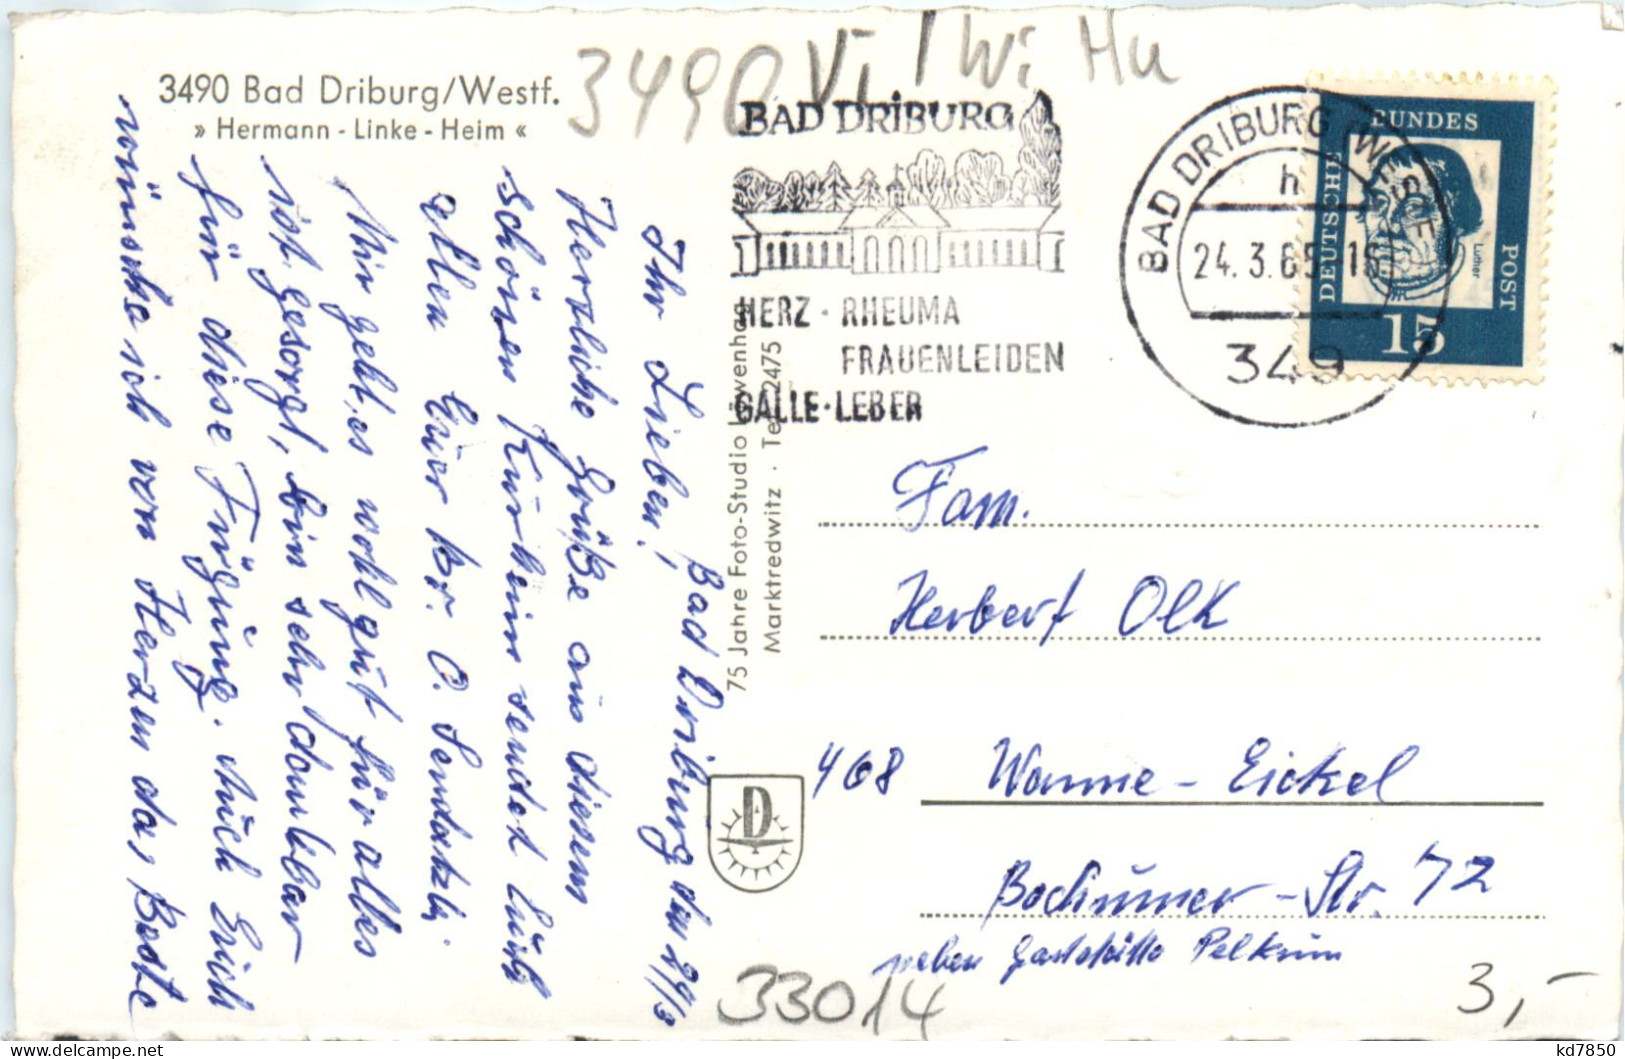 3490 Vi / Wi Hu
3490 Bad Driburg/Westf.
» Hermann - Linke - Heim «
BAD DRIBURG
HERZ · RHEUMA
FRAUENLEIDEN
GALLE · LEBER
BAD DRIBURG (WESTF)
h
24.3.65-16
349
DEUTSCHE BUNDES POST
Luther
15
Bad Driburg den 24/3
Ihr Lieben!
Herzliche Grüße aus diesem
schönen Kurheim sendet Euch
allen Euer Br. O.
Mir geht es wohl gut für alles
ist gesorgt, bin sehr dankbar
für diese Fügung. Auch Euch
wünsche ich von Herzen das Beste
75 Jahre Foto-Studio Löwenhag
Marktredwitz · Tel. 2475
D
Fam.
Herbert Olk
468 Wanne-Eickel
Bochumer-Str. 72
neben Gaststätte Pelkum
33014
3,-
kd7850